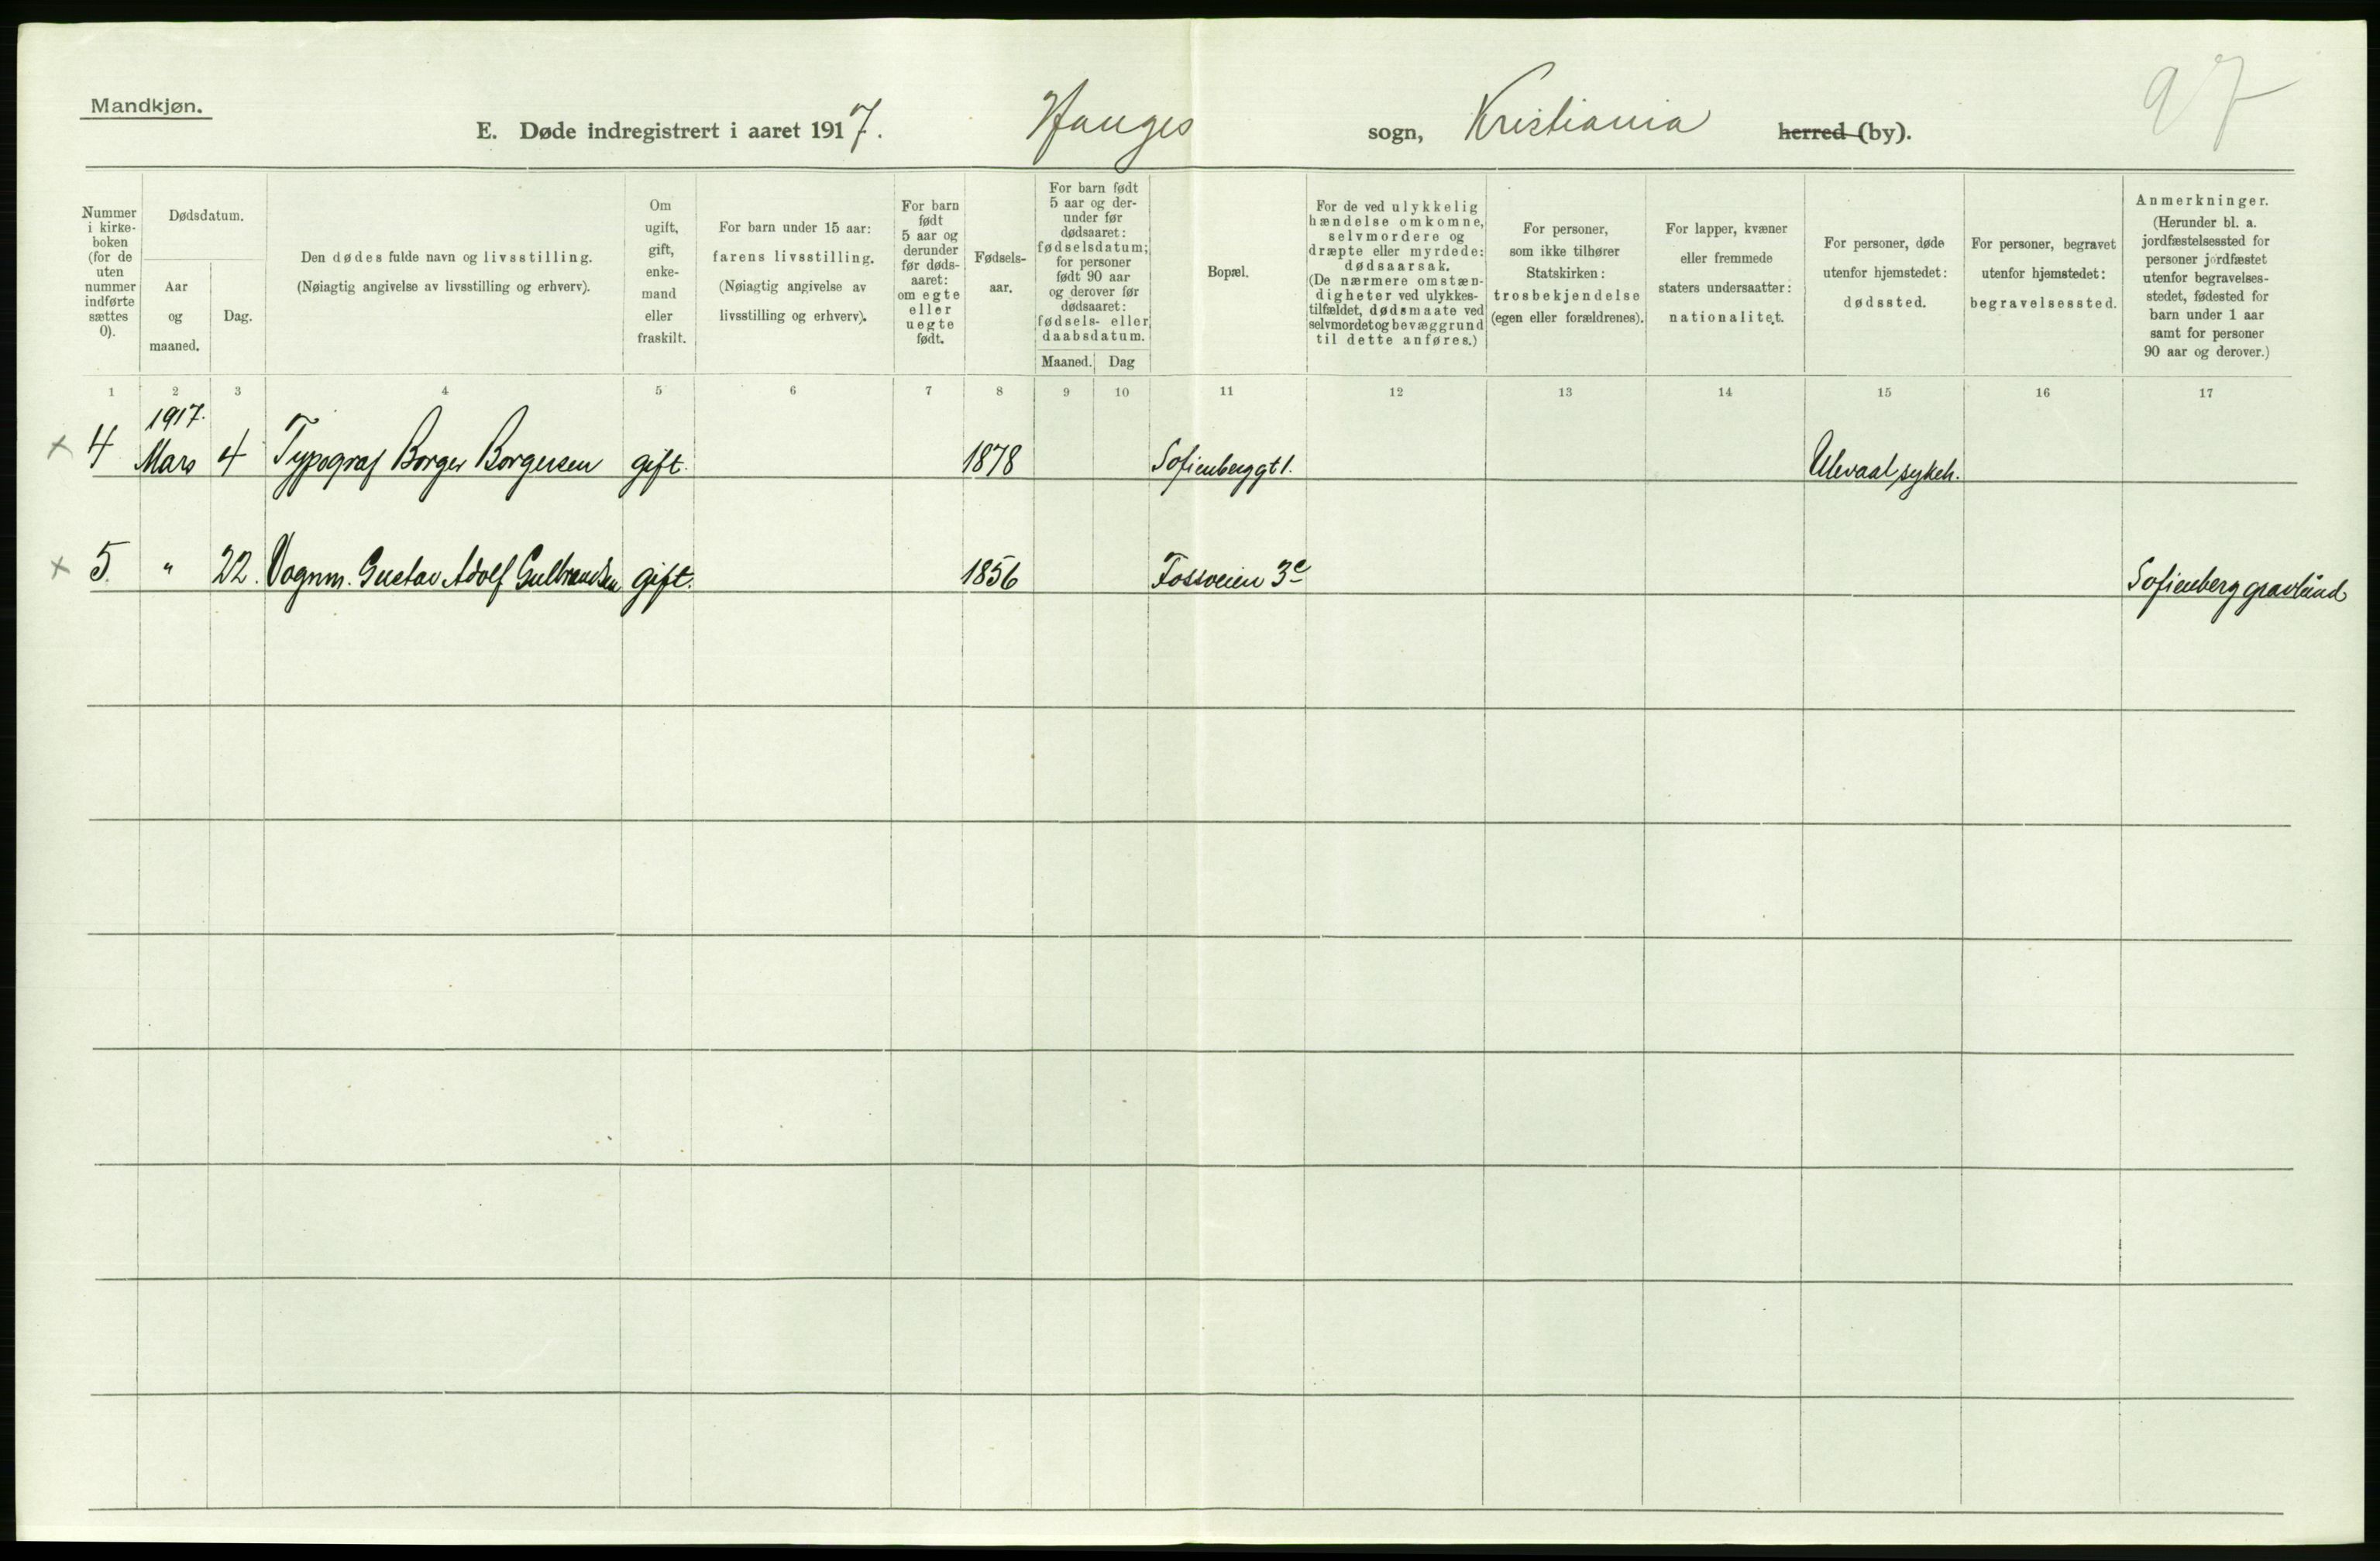 Mandkjøn.
97
E. Døde indregistrert i aaret 1917. Hauges sogn, Kristiania herred (by).
Nummer i kirke-boken (for de uten nummer indførte sættes 0).
Dødsdatum.
Aar og maaned.
Dag.
Den dødes fulde navn og livsstilling.
(Nøiagtig angivelse av livsstilling og erhverv).
Om ugift, gift, enke-mand eller fraskilt.
For barn under 15 aar:
farens livsstilling.
(Nøiagtig angivelse av
livsstilling og erhverv).
For barn født 5 aar og derunder før døds-aaret: om egte eller uegte født.
Fødsels-aar.
For barn født 5 aar og der-under før dødsaaret: fødselsdatum; for personer født 90 aar og derover før dødsaaret: fødsels- eller daabsdatum.
Maaned. Dag
Bopæl.
For de ved ulykkelig hændelse omkomne, selvmordere og dræpte eller myrdede: dødsaarsak.
(De nærmere omstæn-digheter ved ulykkes-tilfældet, dødsmaate ved selvmordet og bevæggrund til dette anføres.)
For personer, som ikke tilhører Statskirken: trosbekjendelse (egen eller forældrenes).
For lapper, kvæner eller fremmede staters undersaatter: nationalitet.
For personer, døde utenfor hjemstedet: dødssted.
For personer, begravet utenfor hjemstedet: begravelsessted.
Anmerkninger.
(Herunder bl. a. jordfæstelsessted for personer jordfæstet utenfor begravelses-stedet, fødested for barn under 1 aar samt for personer 90 aar og derover.)
1 2 3 4 5 6 7 8 9 10 11 12 13 14 15 16 17
1917.
× 4 Mars 4 Typograf Borger Borgersen gift. 1878 Sofienberggt 1. Ulevaal sykeh.
× 5. " 22. Vognm. Gustav Adolf Gulbrandsen gift. 1856 Fossveien 3c Sofienberg gravlund